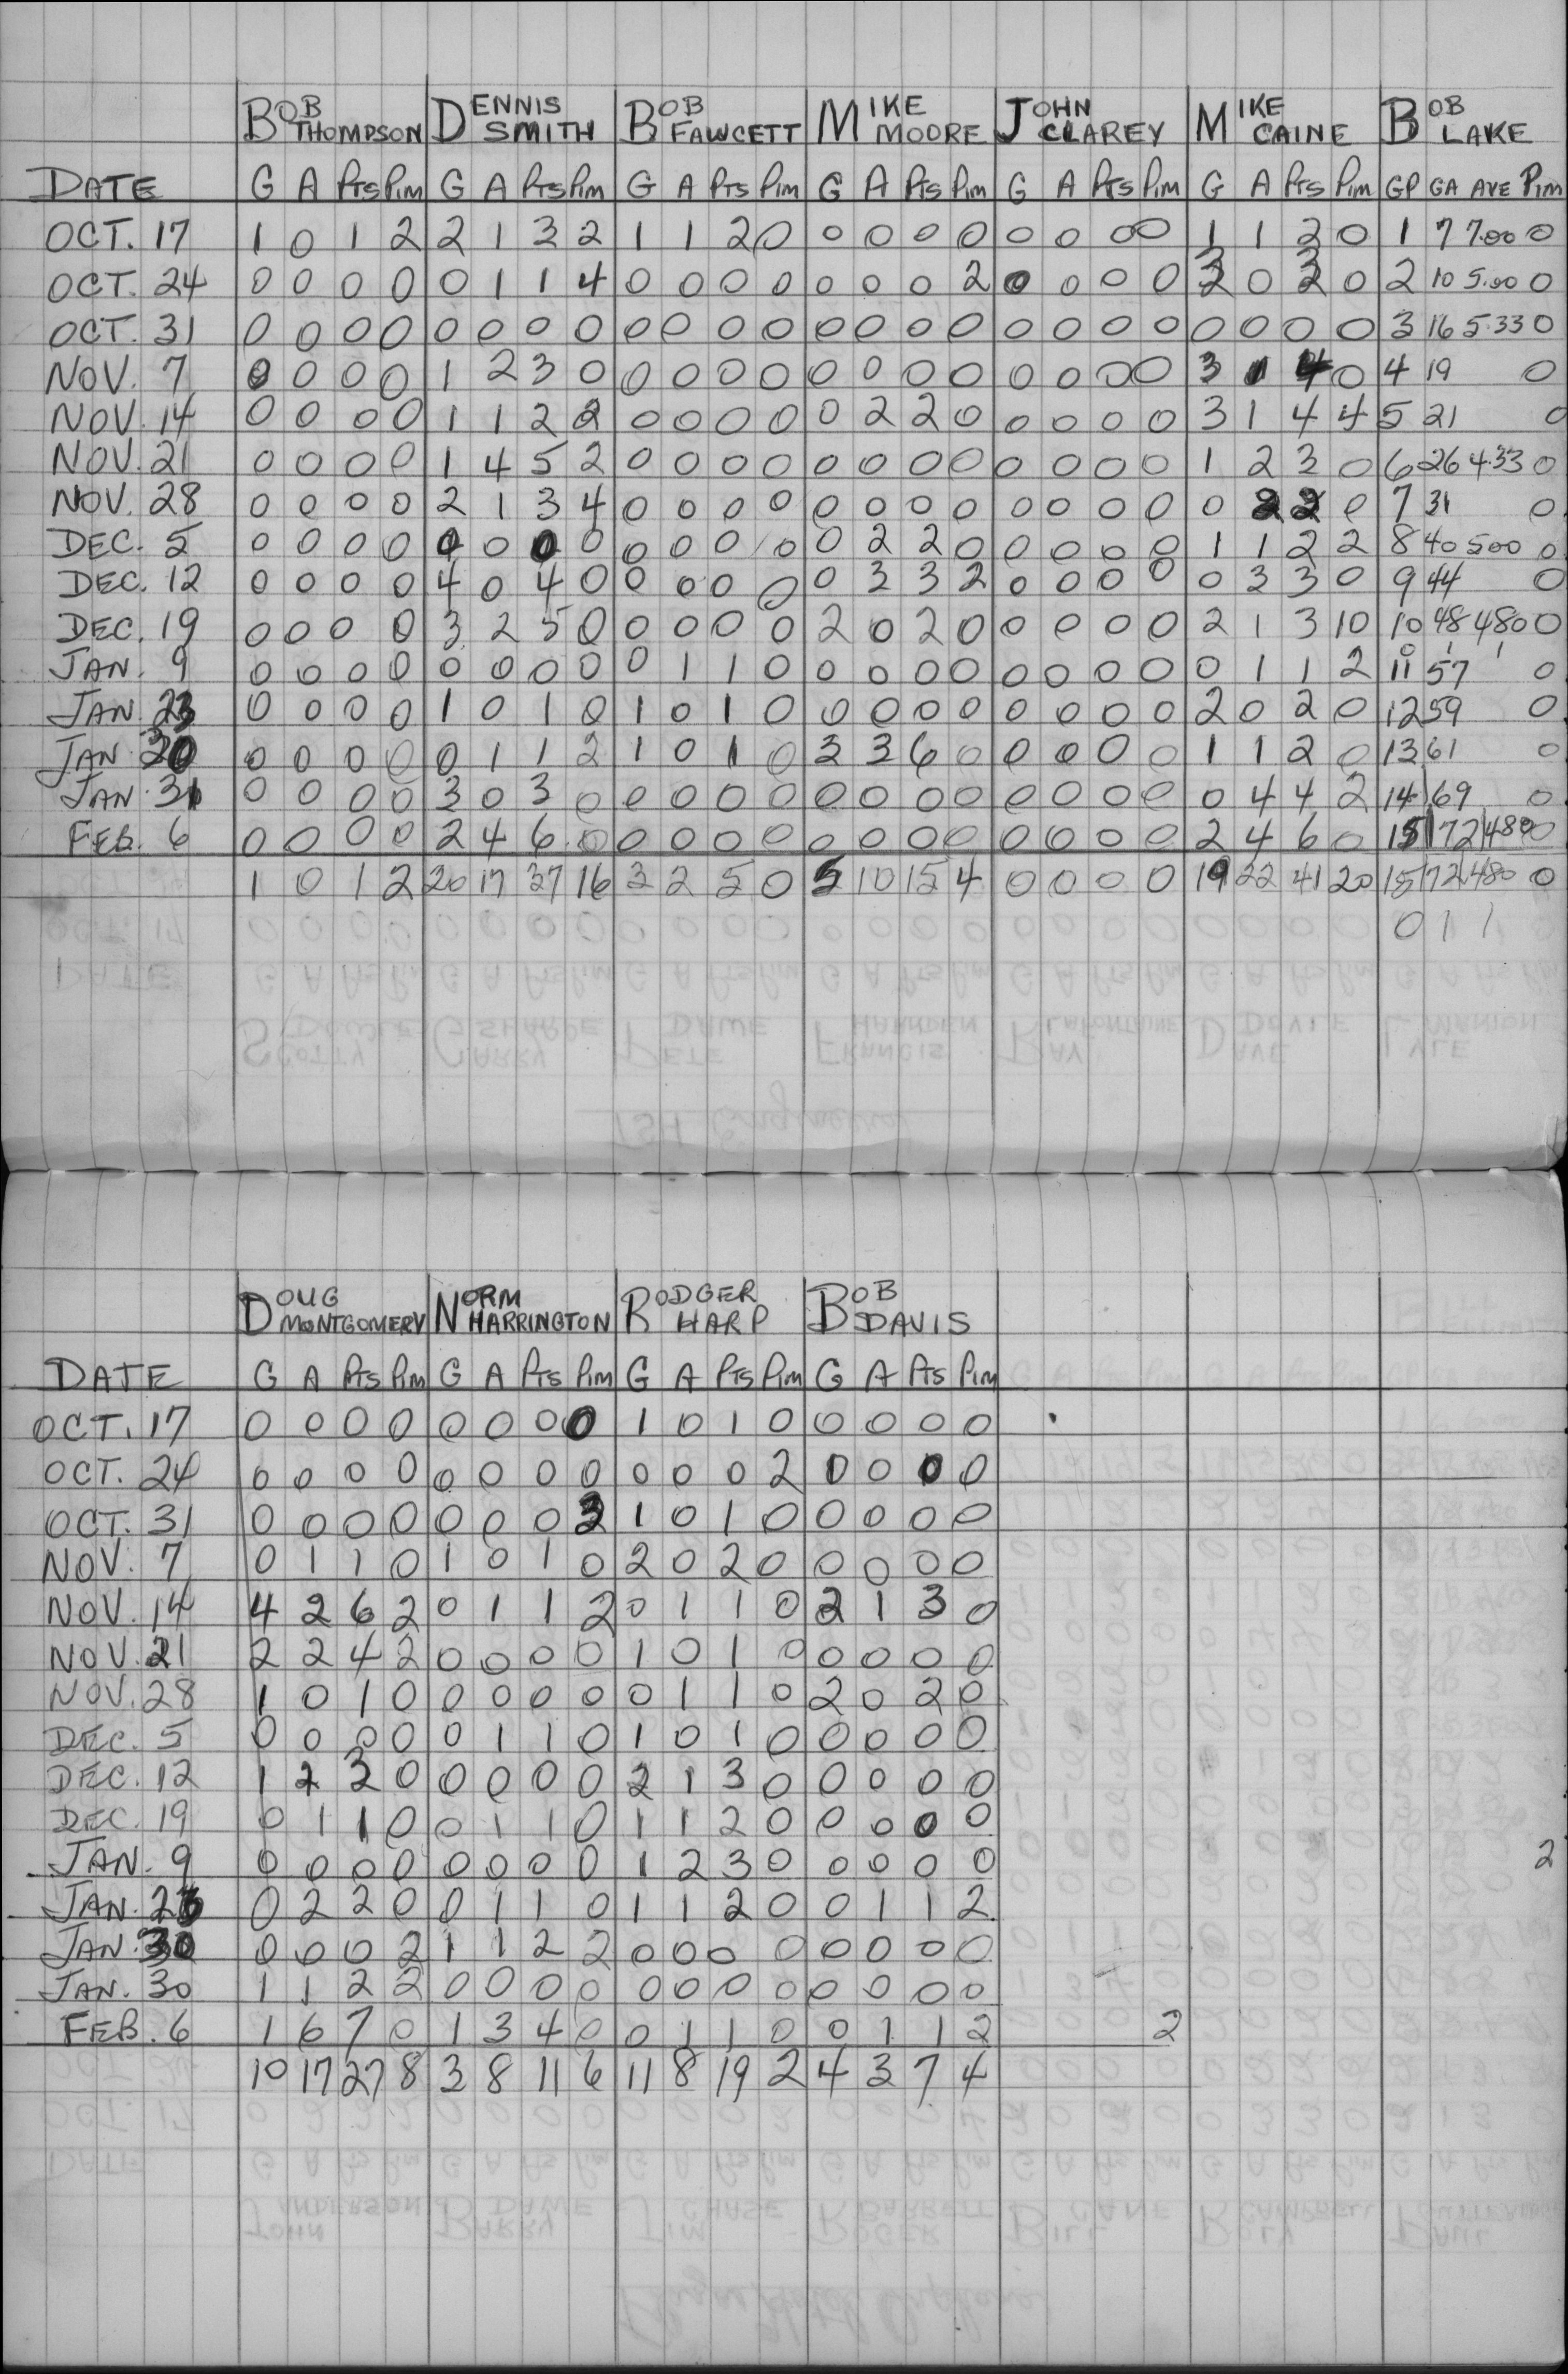 BOB THOMPSON DENNIS SMITH BOB FAWCETT MIKE MOORE JOHN CLAREY MIKE CAINE BOB LAKE
DATE G A Pts Pim G A Pts Pim G A Pts Pim G A Pts Pim G A Pts Pim G A Pts Pim GP GA AVE Pim
OCT. 17 1 0 1 2 2 1 3 2 1 1 2 0 0 0 0 0 0 0 0 0 1 1 2 0 1 7 7.00 0
OCT. 24 0 0 0 0 0 1 1 4 0 0 0 0 0 0 0 2 0 0 0 0 3 0 3 0 2 10 5.00 0
OCT. 31 0 0 0 0 0 0 0 0 0 0 0 0 0 0 0 0 0 0 0 0 0 0 0 0 3 16 5.33 0
NOV. 7 0 0 0 0 1 2 3 0 0 0 0 0 0 0 0 0 0 0 0 0 3 1 4 0 4 19 0
NOV. 14 0 0 0 0 1 1 2 2 0 0 0 0 0 2 2 0 0 0 0 0 3 1 4 4 5 21 0
NOV. 21 0 0 0 0 1 4 5 2 0 0 0 0 0 0 0 0 0 0 0 0 1 2 3 0 6 26 4.33 0
NOV. 28 0 0 0 0 2 1 3 4 0 0 0 0 0 0 0 0 0 0 0 0 0 2 2 0 7 31 0
DEC. 5 0 0 0 0 0 0 0 0 0 0 0 0 0 2 2 0 0 0 0 0 1 1 2 2 8 40 500 0
DEC. 12 0 0 0 0 4 0 4 0 0 0 0 0 0 3 3 2 0 0 0 0 0 3 3 0 9 44 0
DEC. 19 0 0 0 0 3 2 5 0 0 0 0 0 2 0 2 0 0 0 0 0 2 1 3 10 10 48 480 0
0 1 1
JAN. 9 0 0 0 0 0 0 0 0 0 1 1 0 0 0 0 0 0 0 0 0 0 1 1 2 11 57 0
JAN. 23 0 0 0 0 1 0 1 0 1 0 1 0 0 0 0 0 0 0 0 0 2 0 2 0 12 59 0
JAN. 30 0 0 0 0 0 1 1 2 1 0 1 0 3 3 6 0 0 0 0 0 1 1 2 0 13 61 0
JAN. 31 0 0 0 0 3 0 3 0 0 0 0 0 0 0 0 0 0 0 0 0 0 4 4 2 14 69 0
FEB. 6 0 0 0 0 2 4 6 0 0 0 0 0 0 0 0 0 0 0 0 0 2 4 6 0 15 72 480 0
1 0 1 2 20 17 37 16 3 2 5 0 5 10 15 4 0 0 0 0 19 22 41 20 15 72 480 0
0 1 1
DOUG MONTGOMERY NORM HARRINGTON RODGER HARP BOB DAVIS
DATE G A Pts Pim G A Pts Pim G A Pts Pim G A Pts Pim
OCT. 17 0 0 0 0 0 0 0 0 1 0 1 0 0 0 0 0
OCT. 24 0 0 0 0 0 0 0 0 0 0 0 2 0 0 0 0
OCT. 31 0 0 0 0 0 0 0 2 1 0 1 0 0 0 0 0
NOV. 7 0 1 1 0 1 0 1 0 2 0 2 0 0 0 0 0
NOV. 14 4 2 6 2 0 1 1 2 0 1 1 0 2 1 3 0
NOV. 21 2 2 4 2 0 0 0 0 1 0 1 0 0 0 0 0
NOV. 28 1 0 1 0 0 0 0 0 0 1 1 0 2 0 2 0
DEC. 5 0 0 0 0 0 1 1 0 1 0 1 0 0 0 0 0
DEC. 12 1 2 3 0 0 0 0 0 2 1 3 0 0 0 0 0
DEC. 19 0 1 1 0 0 1 1 0 1 1 2 0 0 0 0 0
JAN. 9 0 0 0 0 0 0 0 0 1 2 3 0 0 0 0 0 2
JAN. 23 0 2 2 0 0 1 1 0 1 1 2 0 0 1 1 2
JAN. 30 0 0 0 2 1 1 2 2 0 0 0 0 0 0 0 0
JAN. 30 1 1 2 2 0 0 0 0 0 0 0 0 0 0 0 0
FEB. 6 1 6 7 0 1 3 4 0 0 1 1 0 0 1 1 2 2
10 17 27 8 3 8 11 6 11 8 19 2 4 3 7 4